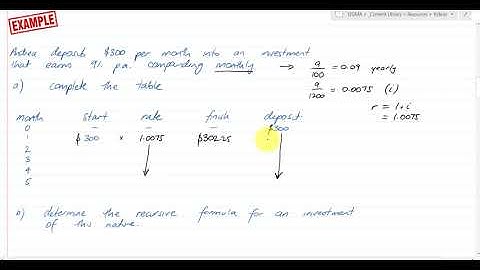 EXAMPLE
Andrea deposits $300 per month into an investment
that earns 9% p.a. compounding monthly → 9/100 = 0.09 yearly
9/1200 = 0.0075 (i)
a) complete the table
r = 1+i
= 1.0075
month start rate finish deposit
0 – – – $300
1 $300 × 1.0075 $302.25
2
3
4
5
b) determine the recursive formula for an investment
of this nature.